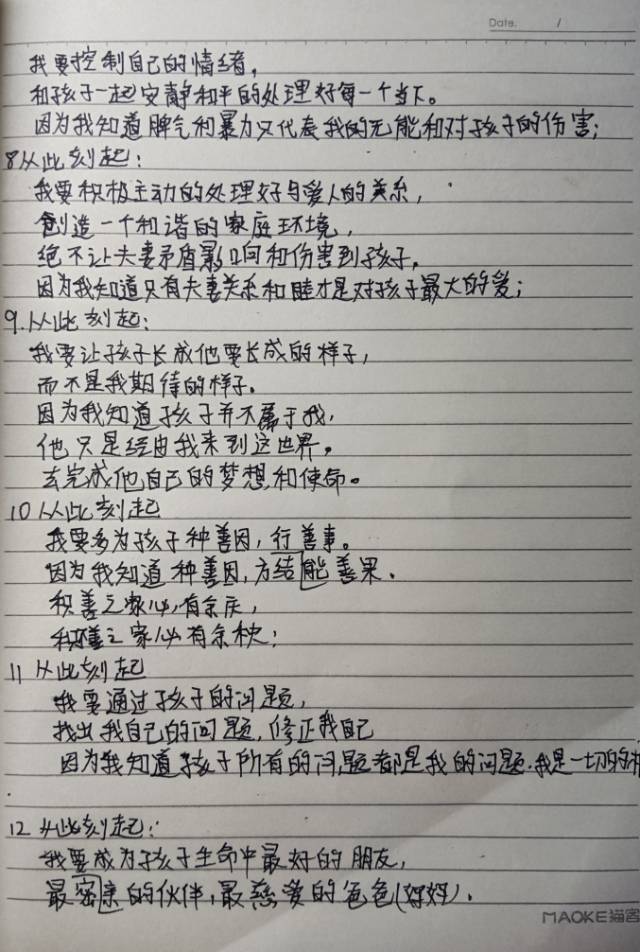 Date.      /
我要控制自己的情绪，
和孩子一起安静和平的处理好每一个当下。
因为我知道脾气和暴力只代表我的无能和对孩子的伤害；
8从此刻起：
我要积极主动的处理好与爱人的关系，
创造一个和谐的家庭环境，
绝不让夫妻矛盾影响和伤害到孩子，
因为我知道只有夫妻关系和睦才是对孩子最大的爱；
9.从此刻起：
我要让孩子长成他要长成的样子，
而不是我期待的样子。
因为我知道孩子并不属于我，
他只是经由我来到这世界，
去完成他自己的梦想和使命。
10从此刻起
我要多为孩子种善因，行善事。
因为我知道种善因，方结能善果、
积善之家必有余庆，
积不善之家必有余秧；
11从此刻起
我要通过孩子的问题，
找出我自己的问题，修正我自己
因为我知道孩子所有的问题都是我的问题．我是一切的
12从此刻起：
我要成为孩子生命中最好的朋友，
最密亲的伙伴，最慈爱的爸爸（妈妈）．
MAOKE猫客